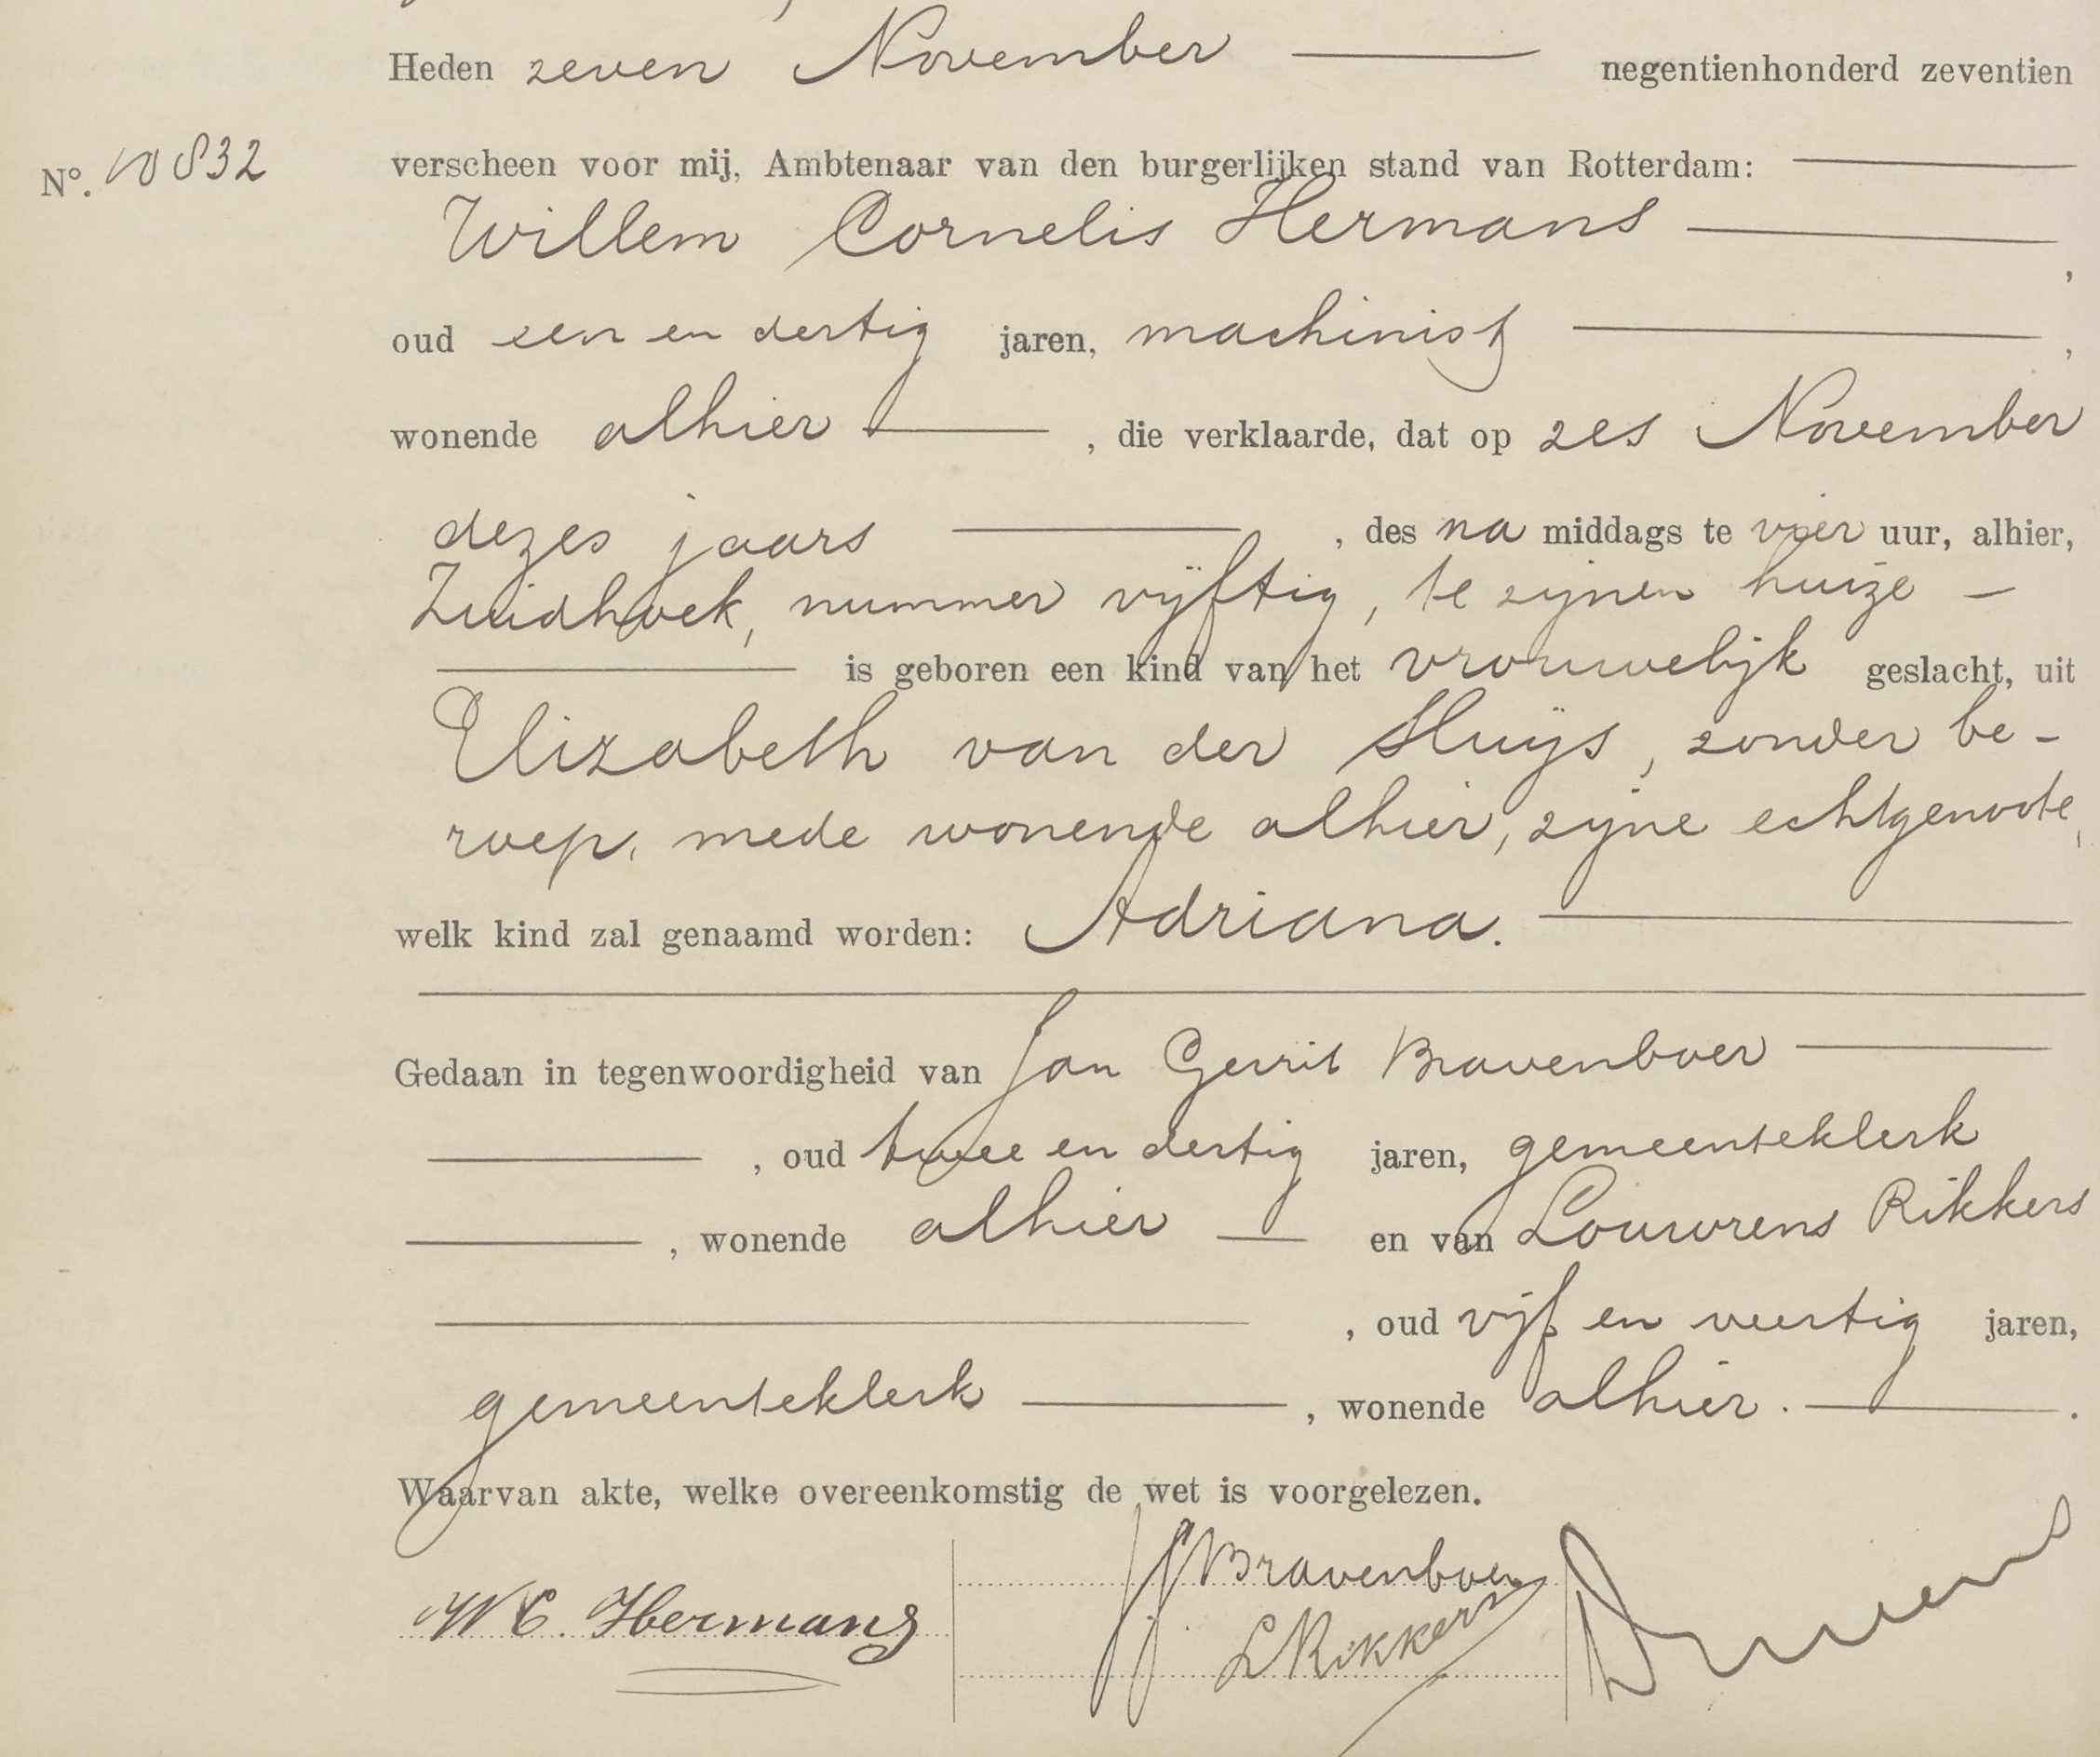 Heden zeven November negentienhonderd zeventien
No. 10832 verscheen voor mij, Ambtenaar van den burgerlijken stand van Rotterdam:
Willem Cornelis Hermans ,
oud een en dertig jaren, machinist ,
wonende alhier , die verklaarde, dat op zes November
dezes jaars , des na middags te vier uur, alhier,
Zuidhoek, nummer vijftig, te zijnen huize —
is geboren een kind van het vrouwelijk geslacht, uit
Elizabeth van der Sluijs, zonder be-
roep, mede wonende alhier, zijne echtgenoote,
welk kind zal genaamd worden: Adriana.
Gedaan in tegenwoordigheid van Jan Gerrit Bravenboer
, oud twee en dertig jaren, gemeenteklerk
, wonende alhier en van Louwrens Rikkers
, oud vijf en veertig jaren,
gemeenteklerk , wonende alhier. .
Waarvan akte, welke overeenkomstig de wet is voorgelezen.
Bravenboer
W C. Hermans
L Rikkers